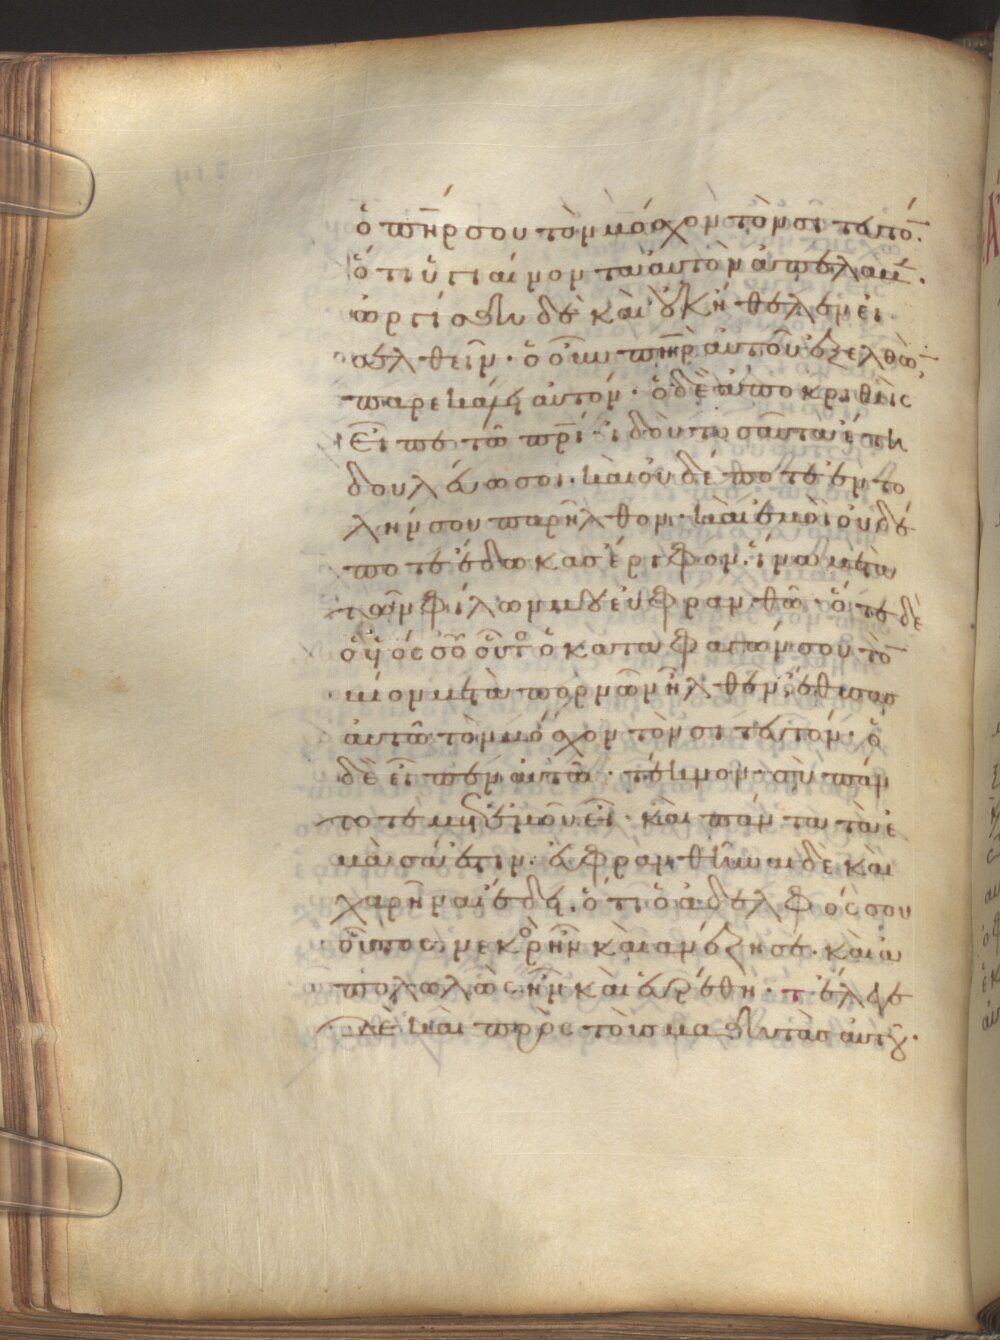 ὁ π̅η̅ρ σου τὸν μόσχον τὸν σιτευτὸ̅.
ὅτι ὑγιαίνον τα αὐτὸν ἀπέλαβ̅.
ὠργίσθη δὲ καὶ οὐκ ἤθελεν εἰ
σελθεῖν· ὁ οὖν π̅η̅ρ αὐτοῦ ἐξελθὼ̅
παρεκάλει αὐτόν· ὁ δὲ ἀποκριθεὶς
εἶπε τῶ π̅ρ̅ι· ἰδοὺ τοσαῦτα ἔτη
δουλεύω σοι· καὶ οὐδέποτε ἐντο
λήν σου παρῆλθον· καὶ ἐμοὶ οὐδέ
ποτε ἔδωκας ἔριφον· ἵνα μετὰ
τῶν φίλων μου εὐφρανθῶ· ὅτε δὲ
ὁ υἱός σου οὗτος ὁ καταφαγών σου τὸ̅
βίον μετὰ πορνῶν ἦλθεν, ἔθυσας
αὐτῶ τὸν μόσχον τὸν σιτευτόν· ὁ
δὲ εἶπεν αὐτῶ· τέκνον· σὺ πάν
τοτε μετ' ἐμοῦ εἶ· καὶ πάντα τὰ ἐ
μὰ σά ἐστιν· εὐφρανθῆναι δὲ καὶ
χαρῆναι ἔδει· ὅτι ὁ ἀδελφός σου
οὗτος νεκρὸς ἦν καὶ ἀνέζησε· καὶ ἀ
πολωλὼς ἦν καὶ εὑρέθη· τ ἔλεγε
δὲ καὶ πρὸς τοὺς μαθητὰς αὐτοῦ·